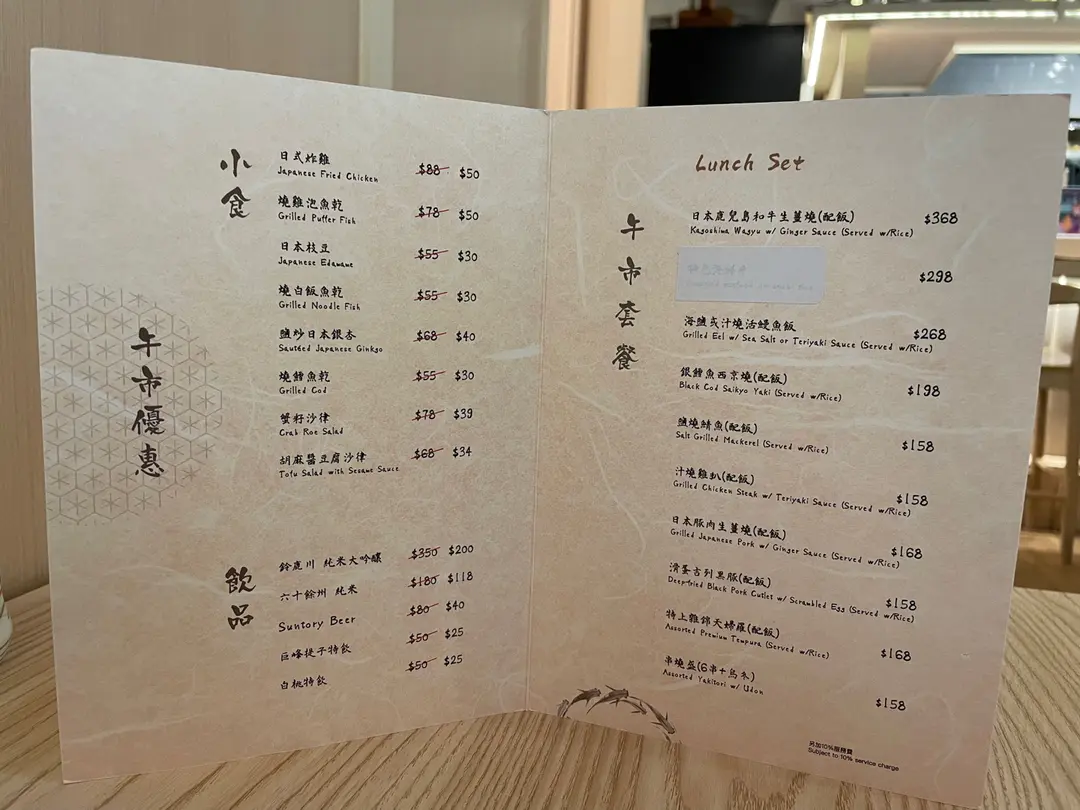 午市優惠
小食
日式炸雞
Japanese Fried Chicken
$88 $50
燒雞泡魚乾
Grilled Puffer Fish
$78 $50
日本枝豆
Japanese Edamame
$55 $30
燒白飯魚乾
Grilled Noodle Fish
$55 $30
鹽炒日本銀杏
Sautéed Japanese Ginkgo
$68 $40
燒鱈魚乾
Grilled Cod
$55 $30
蟹籽沙律
Crab Roe Salad
$78 $39
胡麻醬豆腐沙律
Tofu Salad with Sesame Sauce
$68 $34
飲品
鈴鹿川 純米大吟釀
$350 $200
六十餘州 純米
$180 $118
Suntory Beer
$80 $40
巨峰提子特飲
$50 $25
白桃特飲
$50 $25
Lunch Set
午市套餐
日本鹿兒島和牛生薑燒(配飯)
Kagoshima Wagyu w/ Ginger Sauce (Served w/Rice)
$368
$298
海鹽或汁燒活鰻魚飯
Grilled Eel w/ Sea Salt or Teriyaki Sauce (Served w/Rice)
$268
銀鱈魚西京燒(配飯)
Black Cod Saikyo Yaki (Served w/Rice)
$198
鹽燒鯖魚(配飯)
Salt Grilled Mackerel (Served w/Rice)
$158
汁燒雞扒(配飯)
Grilled Chicken Steak w/ Teriyaki Sauce (Served w/Rice)
$158
日本豚肉生薑燒(配飯)
Grilled Japanese Pork w/ Ginger Sauce (Served w/Rice)
$168
滑蛋吉列黑豚(配飯)
Deep-fried Black Pork Cutlet w/ Scrambled Egg (Served w/Rice)
$158
特上雜錦天婦羅(配飯)
Assorted Premium Tempura (Served w/Rice)
$168
串燒盛(6串+烏冬)
Assorted Yakitori w/ Udon
$158
另加10%服務費
Subject to 10% service charge